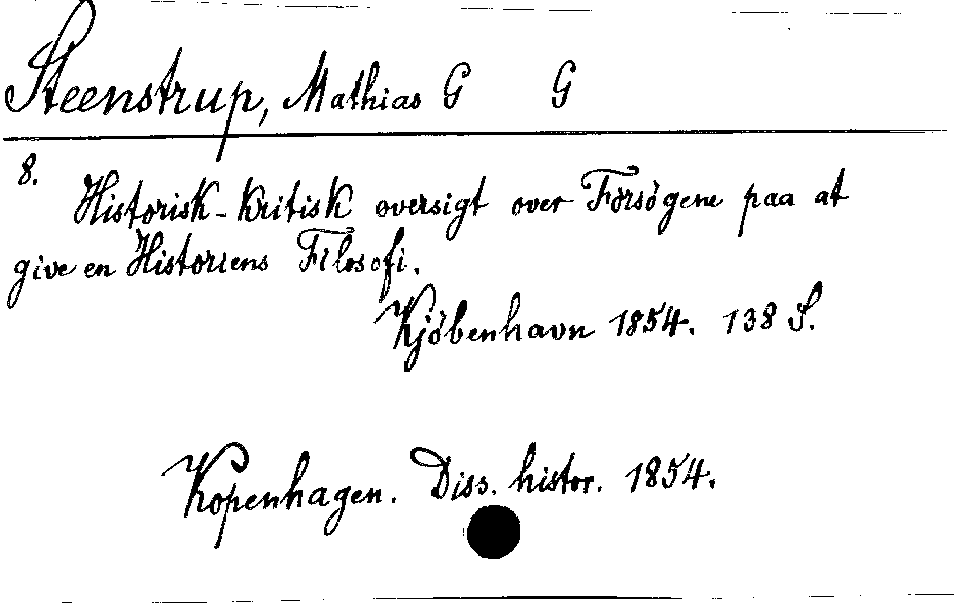 Steenstrup, Mathias G G
8.
Historisk-kritisk oversigt over Försögene paa at
give en Historiens Filosofi.
Kjöbenhavn 1854. 138 S.
Kopenhagen. Diss. histor. 1854.